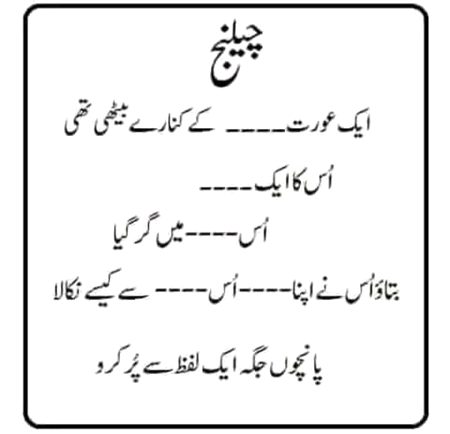 چیلنج
ایک عورت ---- کے کنارے بیٹھی تھی
اُس کا ایک ----
اُس ---- میں گر گیا
بتاؤ اُس نے اپنا ---- اُس ---- سے کیسے نکالا
پانچوں جگہ ایک لفظ سے پُر کرو